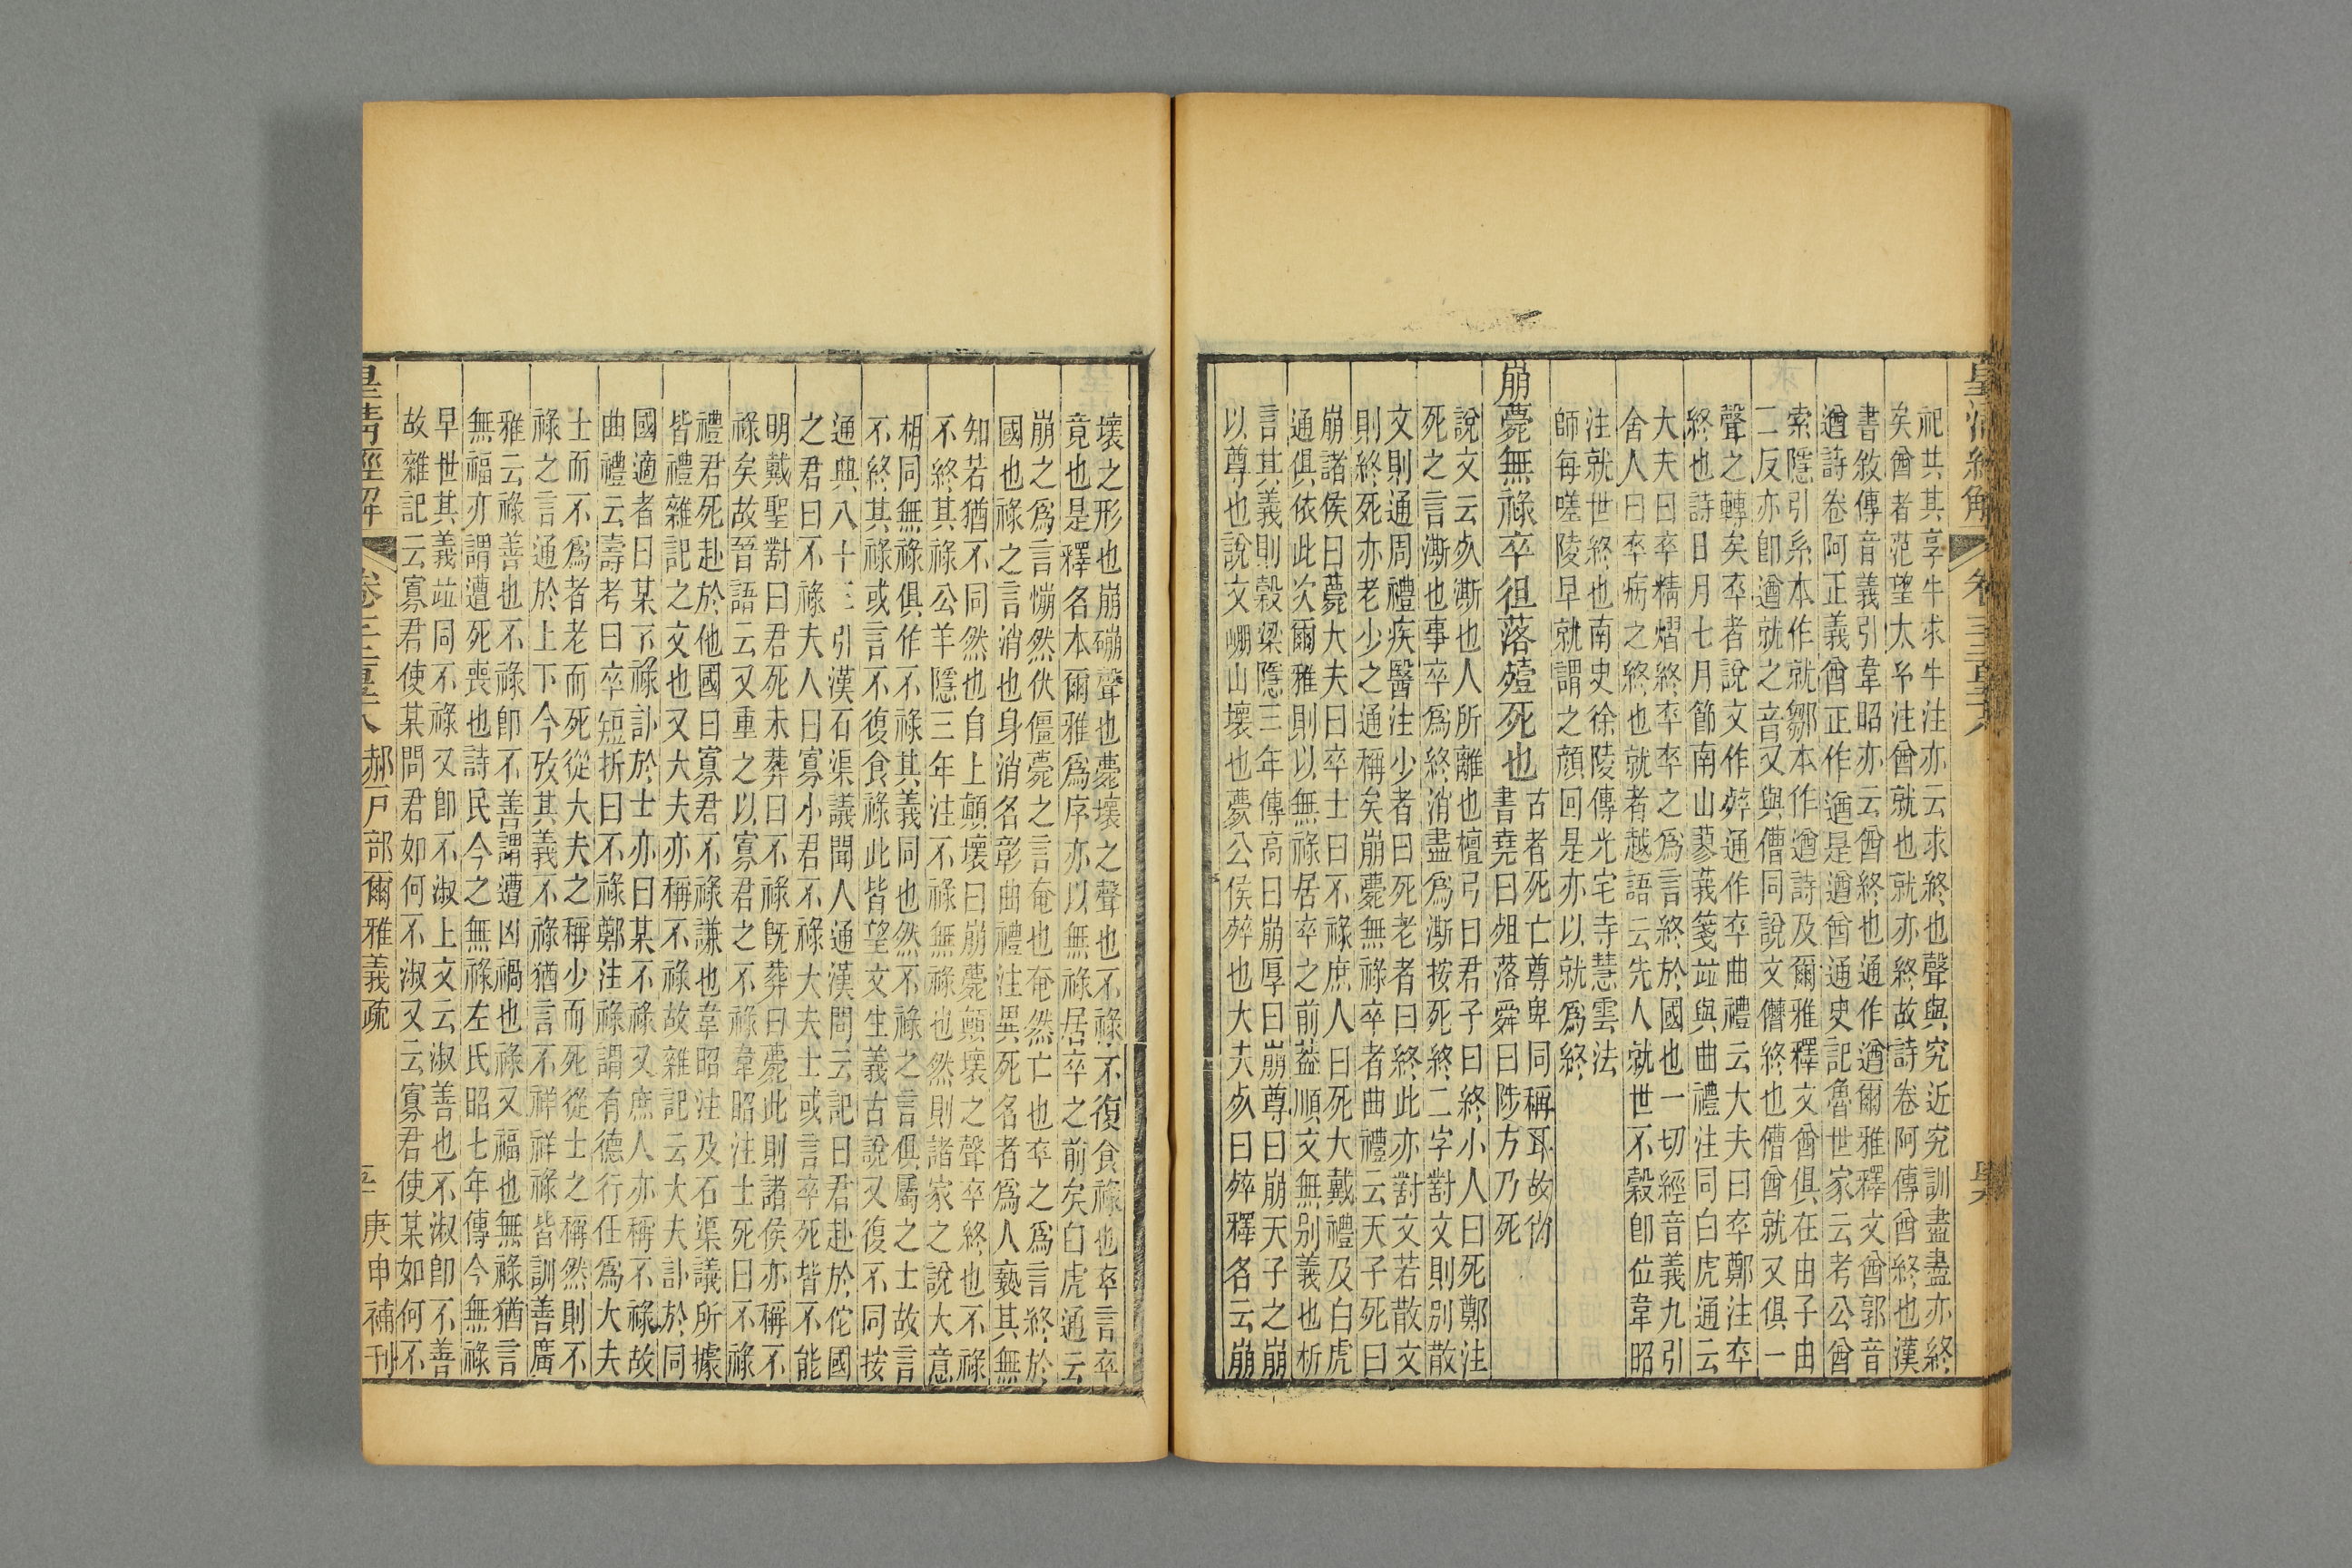 皇清經解
卷
祀共其享牛求牛注亦云求終也聲與究近究訓盡盡亦終
矣酋者范望太玄注酋就也就亦終故詩卷阿傳酋終也漢
書敘傳音義引韋昭亦云酋終也通作遒爾雅釋文酋郭音
遒詩卷阿正義酋正作遒是遒酋通史記魯世家云考公酋
索隱引系本作就鄒本作遒詩及爾雅釋文酋俱在由子由
二反亦卽遒就之音又與傮同說文僭終也傮酋就又俱一
聲之轉矣卒者說文作㱚通作卒曲禮云大夫曰卒鄭注卒
終也詩日月七月節南山蓼莪箋竝與曲禮注同白虎通云
大夫曰卒精熠終卒卒之爲言終於國也一切經音義九引
舍人曰卒病之終也就者越語云先人就世不穀卽位韋昭
注就世終也南史徐陵傳光宅寺慧雲法
師每嗟陵早就謂之顏回是亦以就爲終
崩薨無祿卒徂落殪死也
古者死亡尊卑同稱耳故尙
書堯曰殂落舜曰陟方乃死
說文云𣦸澌也人所離也檀弓曰君子曰終小人曰死鄭注
死之言澌也事卒爲終消盡爲澌按死終二字對文則別散
文則通周禮疾醫注少者曰死老者曰終此亦對文若散文
則終死亦老少之通稱矣崩薨無祿卒者曲禮云天子死曰
崩諸侯曰薨大夫曰卒士曰不祿庶人曰死大戴禮及白虎
通俱依此次爾雅則以無祿居卒之前葢順文無別義也析
言其義則穀梁隱三年傳高曰崩厚曰崩尊曰崩天子之崩
以尊也說文㟴山壞也薨公侯㱚也大夫𣦸曰㱚釋名云崩
壞之形也崩硼聲也薨壞之聲也不祿不復食祿也卒言卒
竟也是釋名本爾雅爲序亦以無祿居卒之前矣白虎通云
崩之爲言㥊然伏僵薨之言奄也奄然亡也卒之爲言終於
國也祿之言消也身消名彰曲禮注異死名者爲人褻其無
知若猶不同然也自上顛壞曰崩薨顛壞之聲卒終也不祿
不終其祿公羊隱三年注不祿無祿也然則諸家之說大意
相同無祿俱作不祿其義同也然不祿之言俱屬之士故言
不終其祿或言不復食祿此皆望文生義古說又復不同按
通典八十三引漢石渠議聞人通漢問云記曰君赴於佗國
之君曰不祿夫人曰寡小君不祿大夫士或言卒死皆不能
明戴聖對曰君死未葬曰不祿旣葬曰薨此則諸侯亦稱不
祿矣故晉語云又重之以寡君之不祿韋昭注士死曰不祿
禮君死赴於他國曰寡君不祿謙也韋昭注及石渠議所據
皆禮雜記之文也又大夫亦稱不祿故雜記云大夫訃於同
國適者曰某不祿訃於士亦曰某不祿又庶人亦稱不祿故
曲禮云壽考曰卒短折曰不祿鄭注祿謂有德行任爲大夫
士而不爲者老而死從大夫之稱少而死從士之稱然則不
祿之言通於上下今攷其義不祿猶言不祥祥祿皆訓善廣
雅云祿善也不祿卽不善謂遭凶禍也祿又福也無祿猶言
無福亦謂遭死喪也詩民今之無祿左氏昭七年傳今無祿
早世其義竝同不祿又卽不淑上文云淑善也不淑卽不善
故雜記云寡君使某問君如何不淑又云寡君使某如何不
皇清經解
郝戶部爾雅義疏
庚申補刊